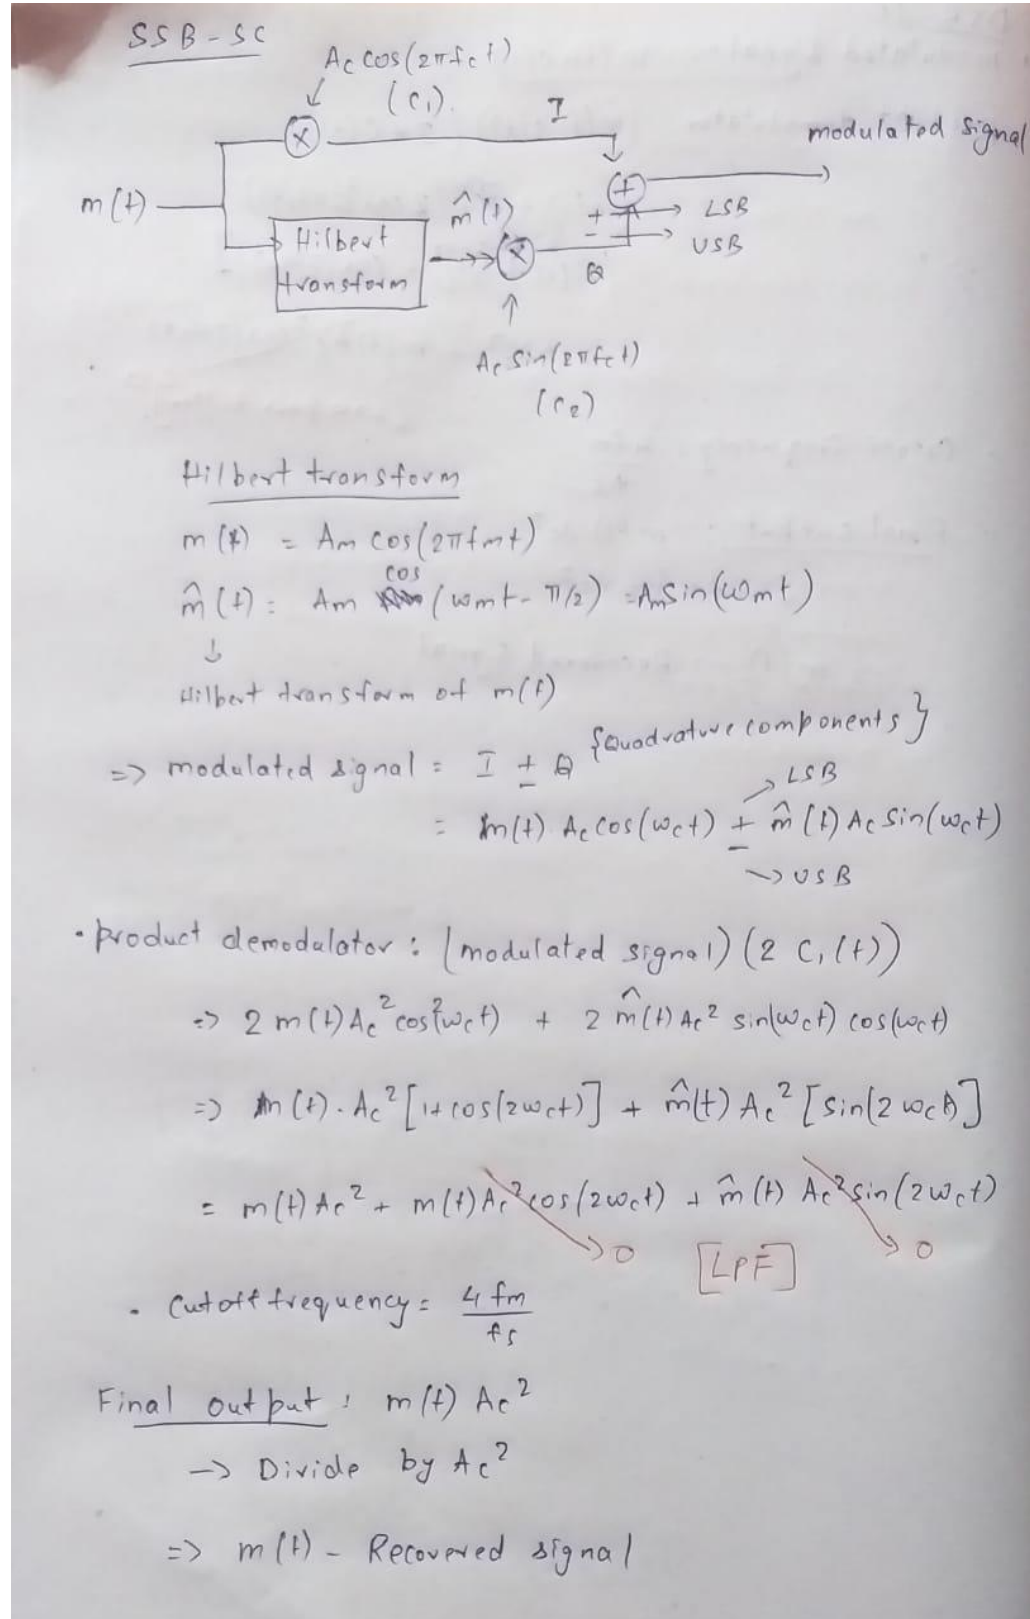 SSB-SC
Ac cos(2πfct)
(c1).
I
modulated signal
m(t)
m̂(t)
Hilbert
transform
+ → LSB
- → USB
Q
Ac Sin(2πfct)
(c2)
Hilbert transform
m(t) = Am cos(2πfmt)
m̂(t) = Am cos(ωmt - π/2) = Am Sin(ωmt)
Hilbert transform of m(t)
=> modulated signal = I ± Q {Quadrature components}
→ LSB
= m(t) Ac cos(ωct) ± m̂(t) Ac Sin(ωct)
→ USB
• product demodulator : (modulated signal) (2 C1(t))
=> 2 m(t) Ac² cos²ωct) + 2 m̂(t) Ac² sin(ωct) cos(ωct)
=> m(t) . Ac² [1+cos(2ωct)] + m̂(t) Ac² [sin(2ωct)]
= m(t) Ac² + m(t) Ac² cos(2ωct) + m̂(t) Ac² sin(2ωct)
→ 0 [LPF] → 0
• Cutoff frequency = 4 fm / fs
Final output : m(t) Ac²
→ Divide by Ac²
=> m(t) - Recovered signal